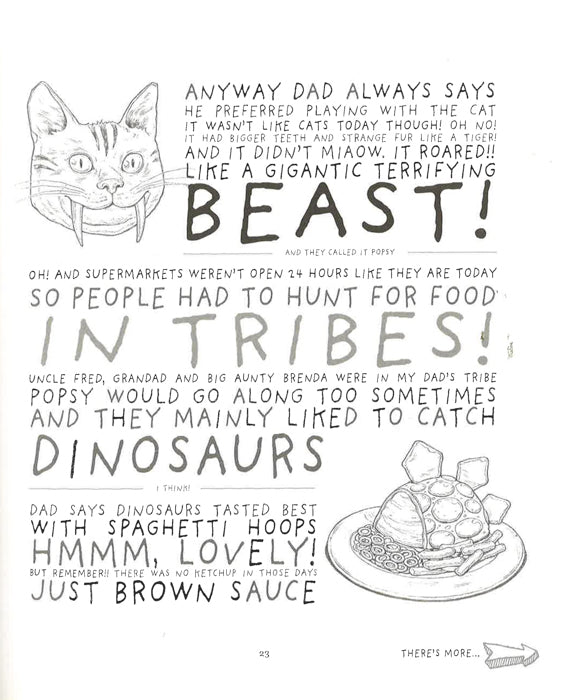 ANYWAY DAD ALWAYS SAYS
HE PREFERRED PLAYING WITH THE CAT
IT WASN'T LIKE CATS TODAY THOUGH! OH NO!
IT HAD BIGGER TEETH AND STRANGE FUR LIKE A TIGER!
AND IT DIDN'T MIAOW. IT ROARED!!
LIKE A GIGANTIC TERRIFYING
BEAST!
AND THEY CALLED IT POPSY
OH! AND SUPERMARKETS WEREN'T OPEN 24 HOURS LIKE THEY ARE TODAY
SO PEOPLE HAD TO HUNT FOR FOOD
IN TRIBES!
UNCLE FRED, GRANDAD AND BIG AUNTY BRENDA WERE IN MY DAD'S TRIBE
POPSY WOULD GO ALONG TOO SOMETIMES
AND THEY MAINLY LIKED TO CATCH
DINOSAURS
I THINK!
DAD SAYS DINOSAURS TASTED BEST
WITH SPAGHETTI HOOPS
HMMM, LOVELY!
BUT REMEMBER!! THERE WAS NO KETCHUP IN THOSE DAYS
JUST BROWN SAUCE
23
THERE'S MORE...